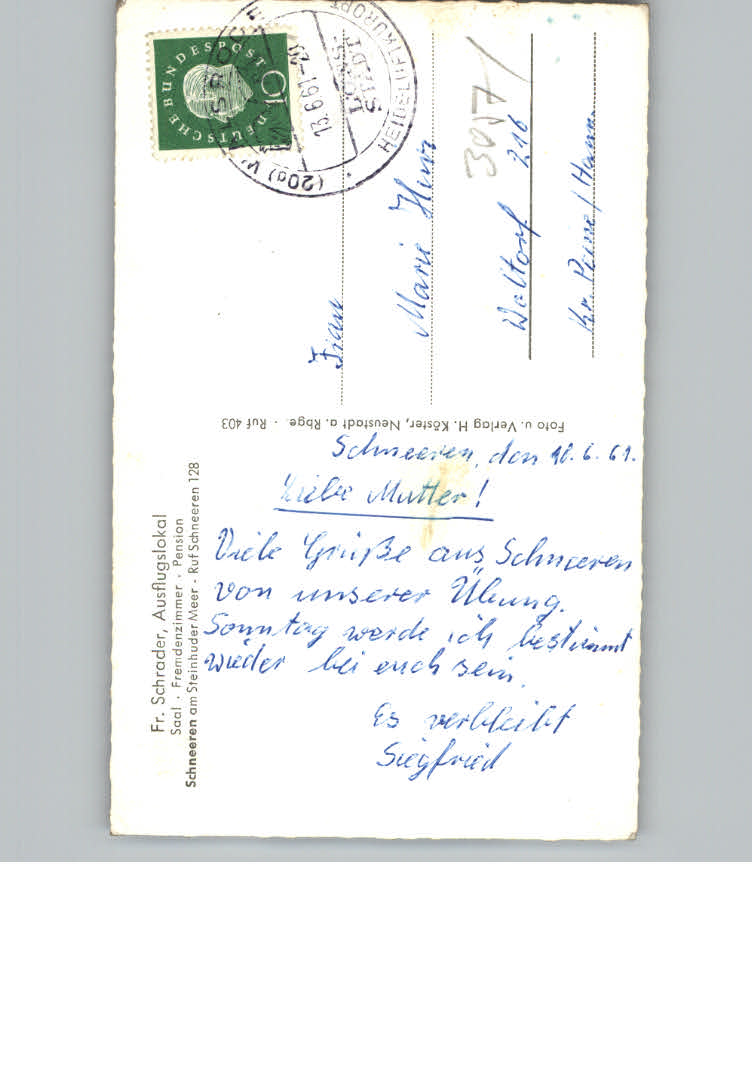 Fr. Schrader, Ausflugslokal
Saal · Fremdenzimmer · Pension
Schneeren am Steinhuder Meer · Ruf Schneeren 128
Schneeren, den 10.6.61.
Liebe Mutter!
Viele Grüße aus Schneeren
von unserer Übung.
Sonntag werde ich bestimmt
wieder bei euch sein.
Es verbleibt
Siegfried
Foto u. Verlag H. Köster, Neustadt a. Rbge. · Ruf 403
DEUTSCHE BUNDESPOST
10
(20a) WALSRODE
13.6.61-20
LÖNS-
STADT
HEIDELUFTKURORT
Frau
Marie
3017
216
Kr. Peine/Hann.